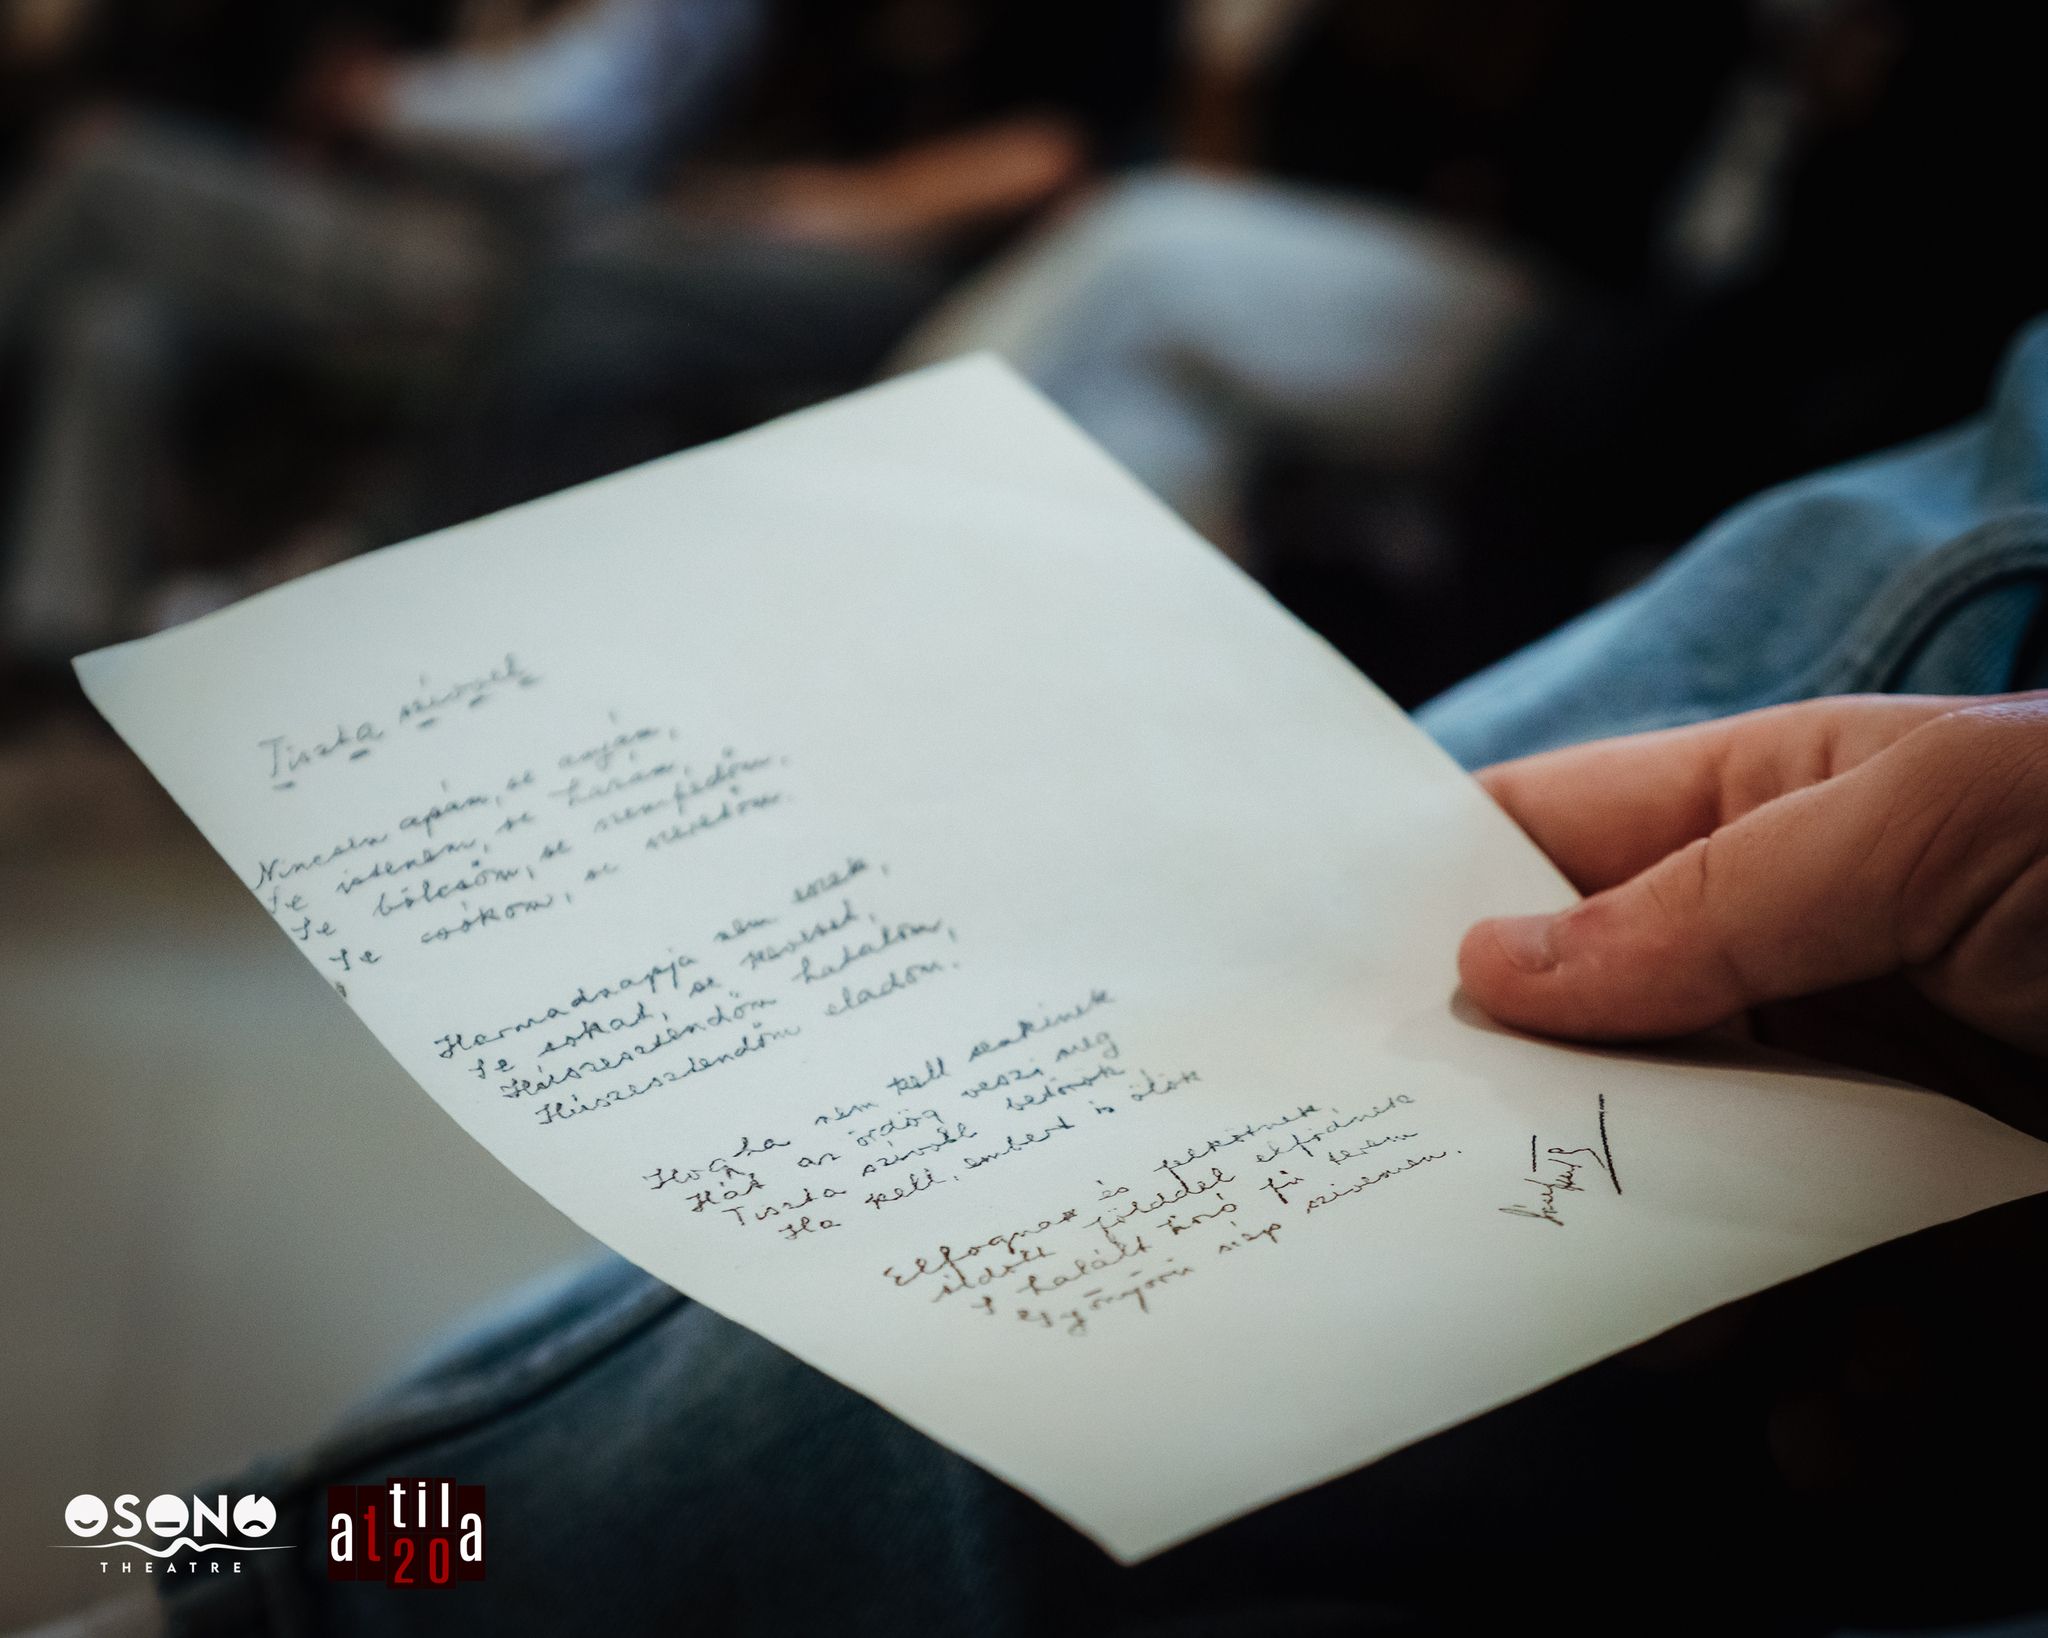 Tiszta szívvel
Nincsen apám, se anyám,
Se istenem, se hazám,
Se bölcsőm, se szemfedőm,
Se csókom, se szeretőm.
Harmadnapja nem eszek,
Se sokat, se keveset,
Húszesztendőm hatalom,
Húszesztendőm eladom.
Hogyha nem kell senkinek
Hát az ördög veszi meg
Tiszta szívvel betörök
Ha kell, embert is ölök
Elfognak és felkötnek
áldott földdel elfödnek
S halált hozó fű terem
Gyönyörű szép szívemen.
OSONÓ
THEATRE
attila
t20